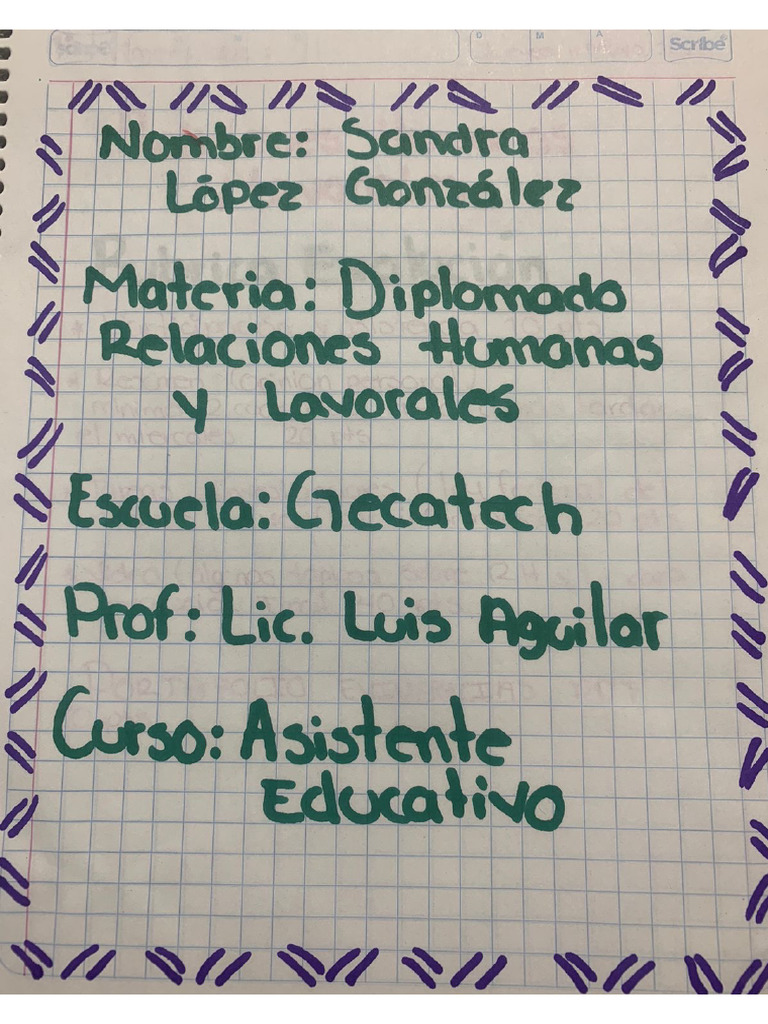 D M A
Scribe
Nombre: Sandra
López González
Materia: Diplomado
Relaciones Humanas
y Lavorales
Escuela: Gecatech
Prof: Lic. Luis Aguilar
Curso: Asistente
Educativo